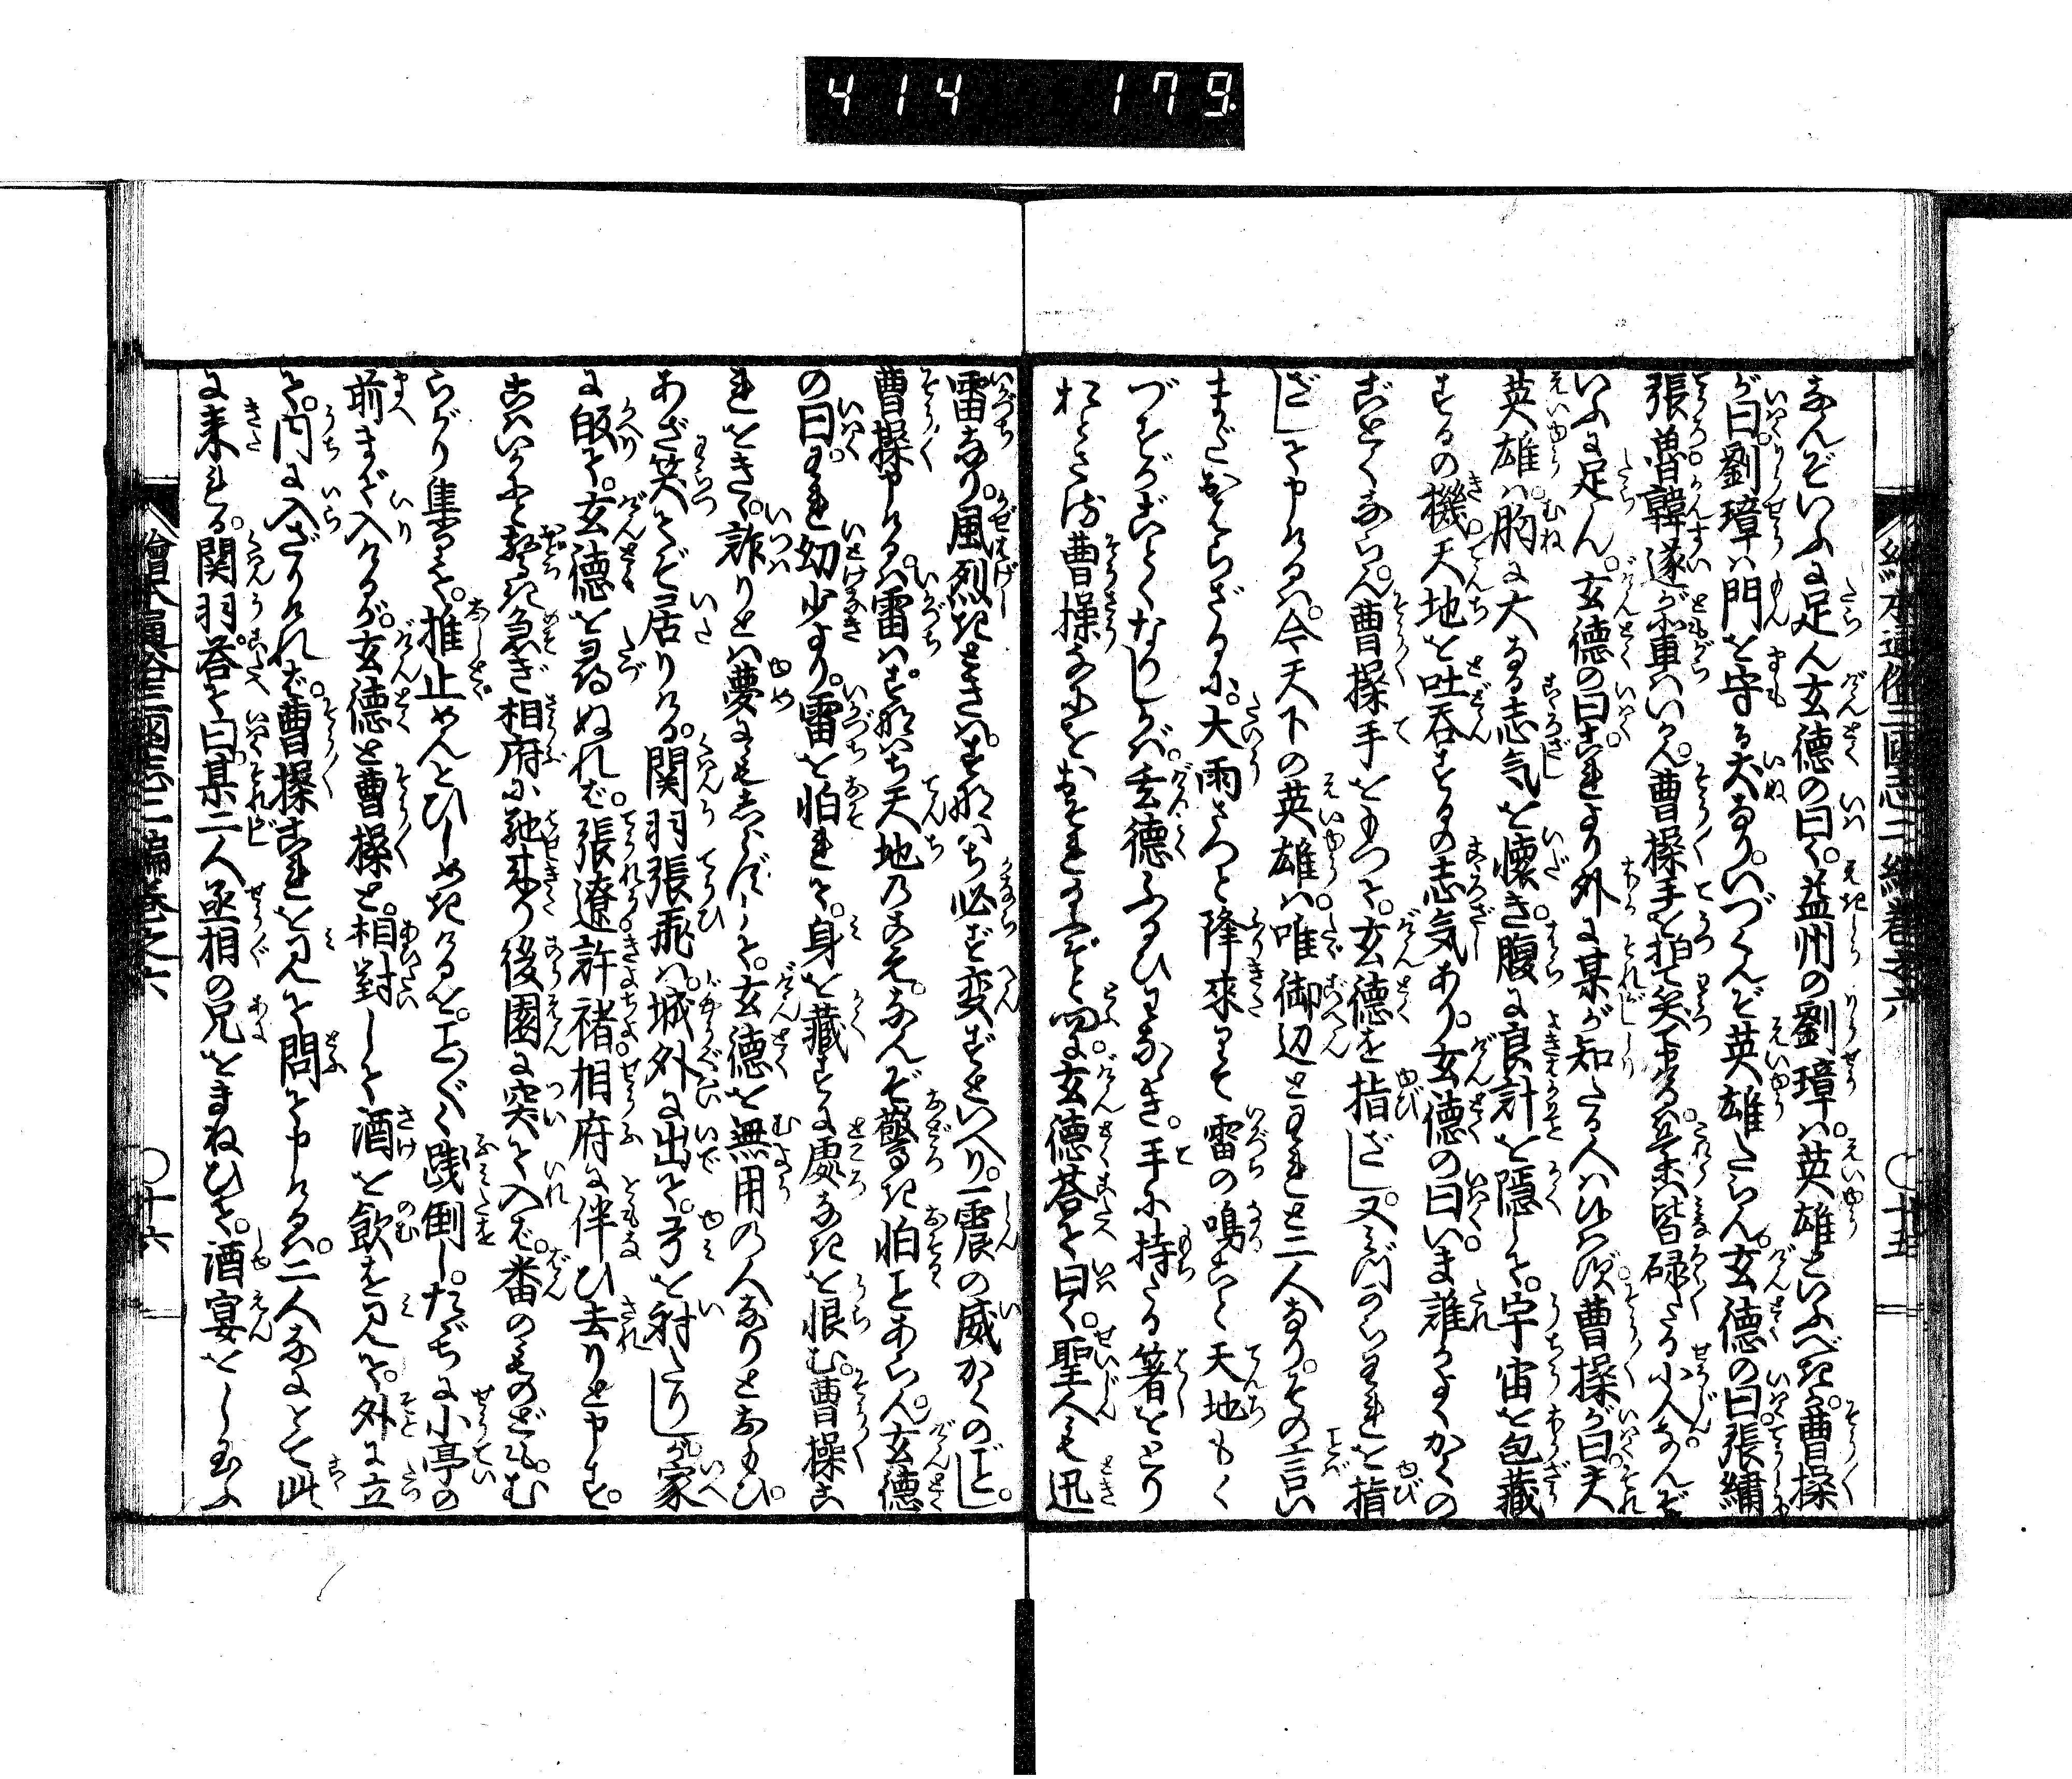 414 179
なんぞいふに足ん玄徳の曰く益州の劉璋は英雄といふべきか曹操
が曰劉璋は門を守る犬なりいづくんぞ英雄たらん玄徳の曰張繍
張魯韓遂が輩はいかん曹操手を拍て笑て申すは是等は皆碌々たる小人なんぞ
いふに足ん玄徳の曰これより外に某が知たる人は候はず曹操が曰夫
英雄は胸に大なる志気を懐き腹に良計を隠して宇宙を包蔵
するの機天地を吐呑するの志気あり玄徳の曰いま誰かよくかくの
ごとくならん曹操手をもつて玄徳を指ざし又みづからわれを指
ざして申けるは今天下の英雄は唯御辺とわれと二人なりその言い
まだおはらざるに大雨さつと降来りて雷の鳴こと天地もく
づるがごとくなりしかば玄徳ふるひわなゝき手に持たる箸をとり
おとさる曹操なにをおそるゝぞと問ふ玄徳答て曰く聖人も迅
雷なり風烈きときはすなはち必ず変ずといへり一震の威かくのごとし
曹操申けるは雷はすなはち天地のこゑなんぞ驚き怕ことあらん玄徳
の曰われ幼少より雷を怕れて身を蔵すに処なきを恨む曹操こ
れをきゝ詐りとは夢にもしらずして玄徳を無用の人なりとおもひ
あざ笑てぞ居りける関羽張飛は城外に出て弓を射たりしが家
に皈て玄徳を尋ぬれば張遼許褚相府に伴ひ去りと申す
こはいかにと驚き急ぎ相府に馳来り後園に突て入ば番のものどもむ
らがり集て推止めんとひしめきけるをこと〴〵く践倒したゞちに小亭の
前まで入けるが玄徳と曹操と相対して酒を飲を見て外に立
て内に入ざりければ曹操これを見て問て申けるは二人なにとて此
に来れる関羽答て曰某二人丞相の兄をまねひて酒宴をし玉ふ